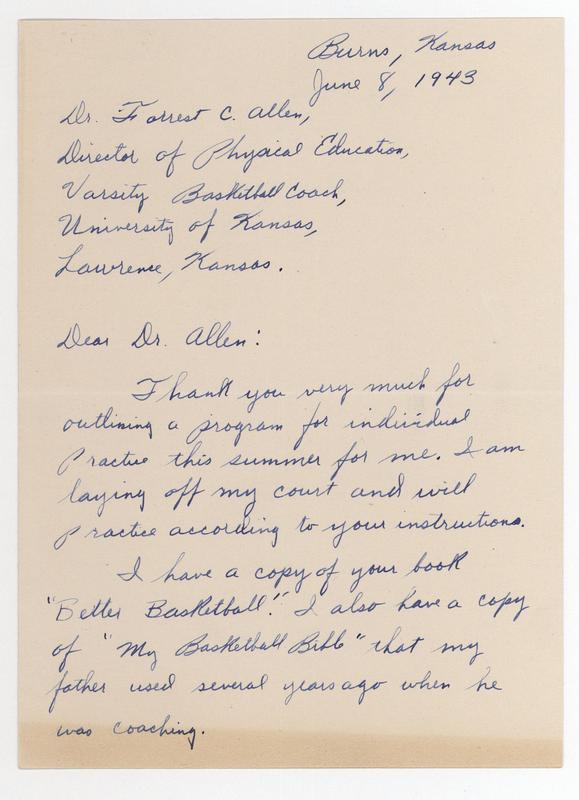 Burns, Kansas
June 8, 1943
Dr. Forrest C. Allen,
Director of Physical Education,
Varsity Basketball Coach,
University of Kansas,
Lawrence, Kansas.
Dear Dr. Allen:
Thank you very much for
outlining a program for individual
Practice this summer for me. I am
laying off my court and will
Practice according to your instructions.
I have a copy of your book
"Better Basketball." I also have a copy
of "My Basketball Bible" that my
father used several years ago when he
was coaching.